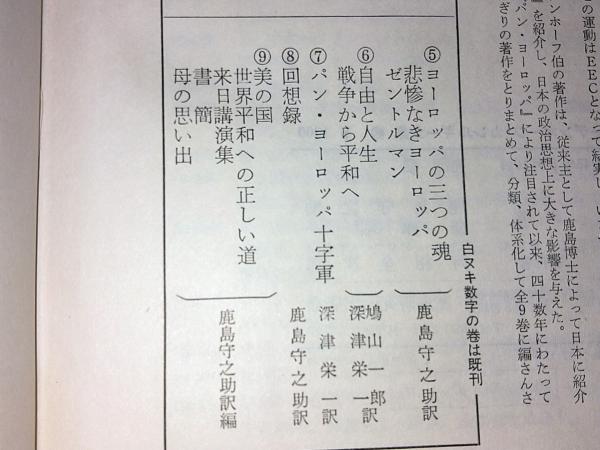 の運動はEECとなって結実し
ンホーフ伯の著作は、従来主として鹿島博士によって日本に紹介
』を紹介し、日本の政治思想上に大きな影響を与えた。
パン・ヨーロッパ』により注目されて以来、四十数年にわたって
ぎりの著作をとりまとめて、分類、体系化して全9巻に編さんさ
白ヌキ数字の巻は既刊
⑤ヨーロッパの三つの魂
悲惨なきヨーロッパ
ゼントルマン
鹿島守之助訳
⑥自由と人生
戦争から平和へ
鳩山一郎
深津栄一訳
⑦パン・ヨーロッパ十字軍
深津栄一訳
⑧回想録
鹿島守之助訳
⑨美の国
世界平和への正しい道
来日講演集
書簡
母の思い出
鹿島守之助訳編